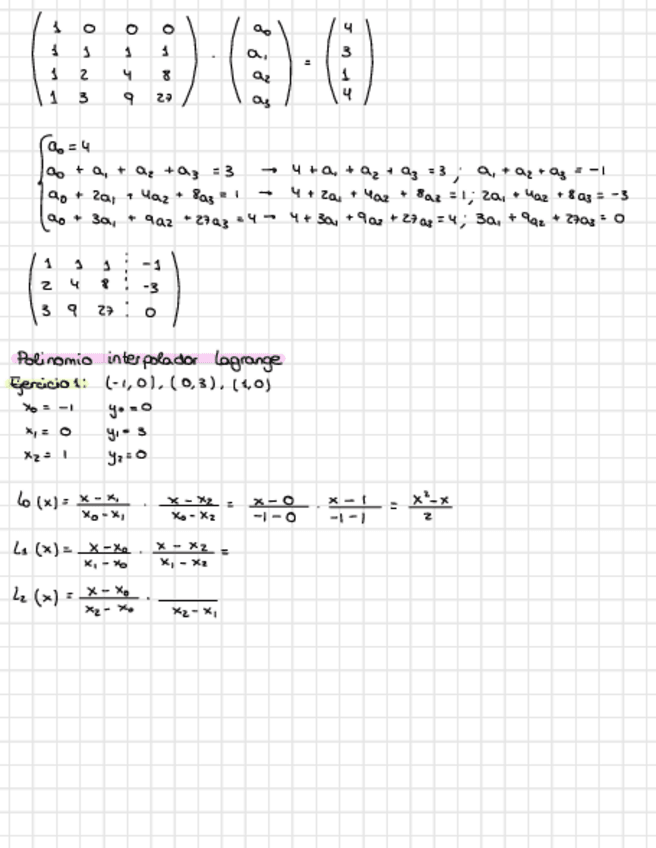 ( 1 0 0 0 ) ( a₀ ) ( 4 )
( 1 1 1 1 ) · ( a₁ ) = ( 3 )
( 1 2 4 8 ) ( a₂ ) ( 1 )
( 1 3 9 27 ) ( a₃ ) ( 4 )
a₀ = 4
a₀ + a₁ + a₂ + a₃ = 3 → 4 + a₁ + a₂ + a₃ = 3 ; a₁ + a₂ + a₃ = -1
a₀ + 2a₁ + 4a₂ + 8a₃ = 1 → 4 + 2a₁ + 4a₂ + 8a₃ = 1 ; 2a₁ + 4a₂ + 8a₃ = -3
a₀ + 3a₁ + 9a₂ + 27a₃ = 4 → 4 + 3a₁ + 9a₂ + 27a₃ = 4 ; 3a₁ + 9a₂ + 27a₃ = 0
( 1 1 1 ⋮ -1 )
( 2 4 8 ⋮ -3 )
( 3 9 27 ⋮ 0 )
Polinomio interpolador lagrange
Ejercicio 1: (-1,0), (0,3), (1,0)
x₀ = -1 y₀ = 0
x₁ = 0 y₁ = 3
x₂ = 1 y₂ = 0
L₀ (x) = (x - x₁)/(x₀ - x₁) · (x - x₂)/(x₀ - x₂) = (x - 0)/(-1 - 0) · (x - 1)/(-1 - 1) = (x² - x)/2
L₁ (x) = (x - x₀)/(x₁ - x₀) · (x - x₂)/(x₁ - x₂) =
L₂ (x) = (x - x₀)/(x₂ - x₀) · /(x₂ - x₁)